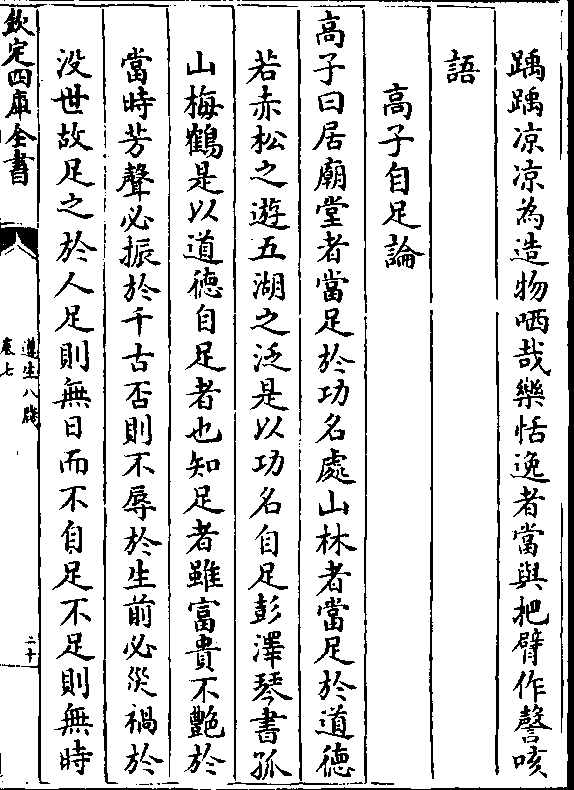 踽踽凉凉為造物哂哉樂恬逸者當與把臂作謦咳
語
高子自足論
高子曰居廟堂者當足於功名處山林者當足於道德
若赤松之遊五湖之泛是以功名自足彭澤琴書孤
山梅鶴是以道德自足者也知足者雖富貴不艷於
當時芳聲必振於千古否則不辱於生前必災禍於
没世故足之於人足則無日而不自足不足則無時
欽定四庫全書
遵生八牋
卷七
二十